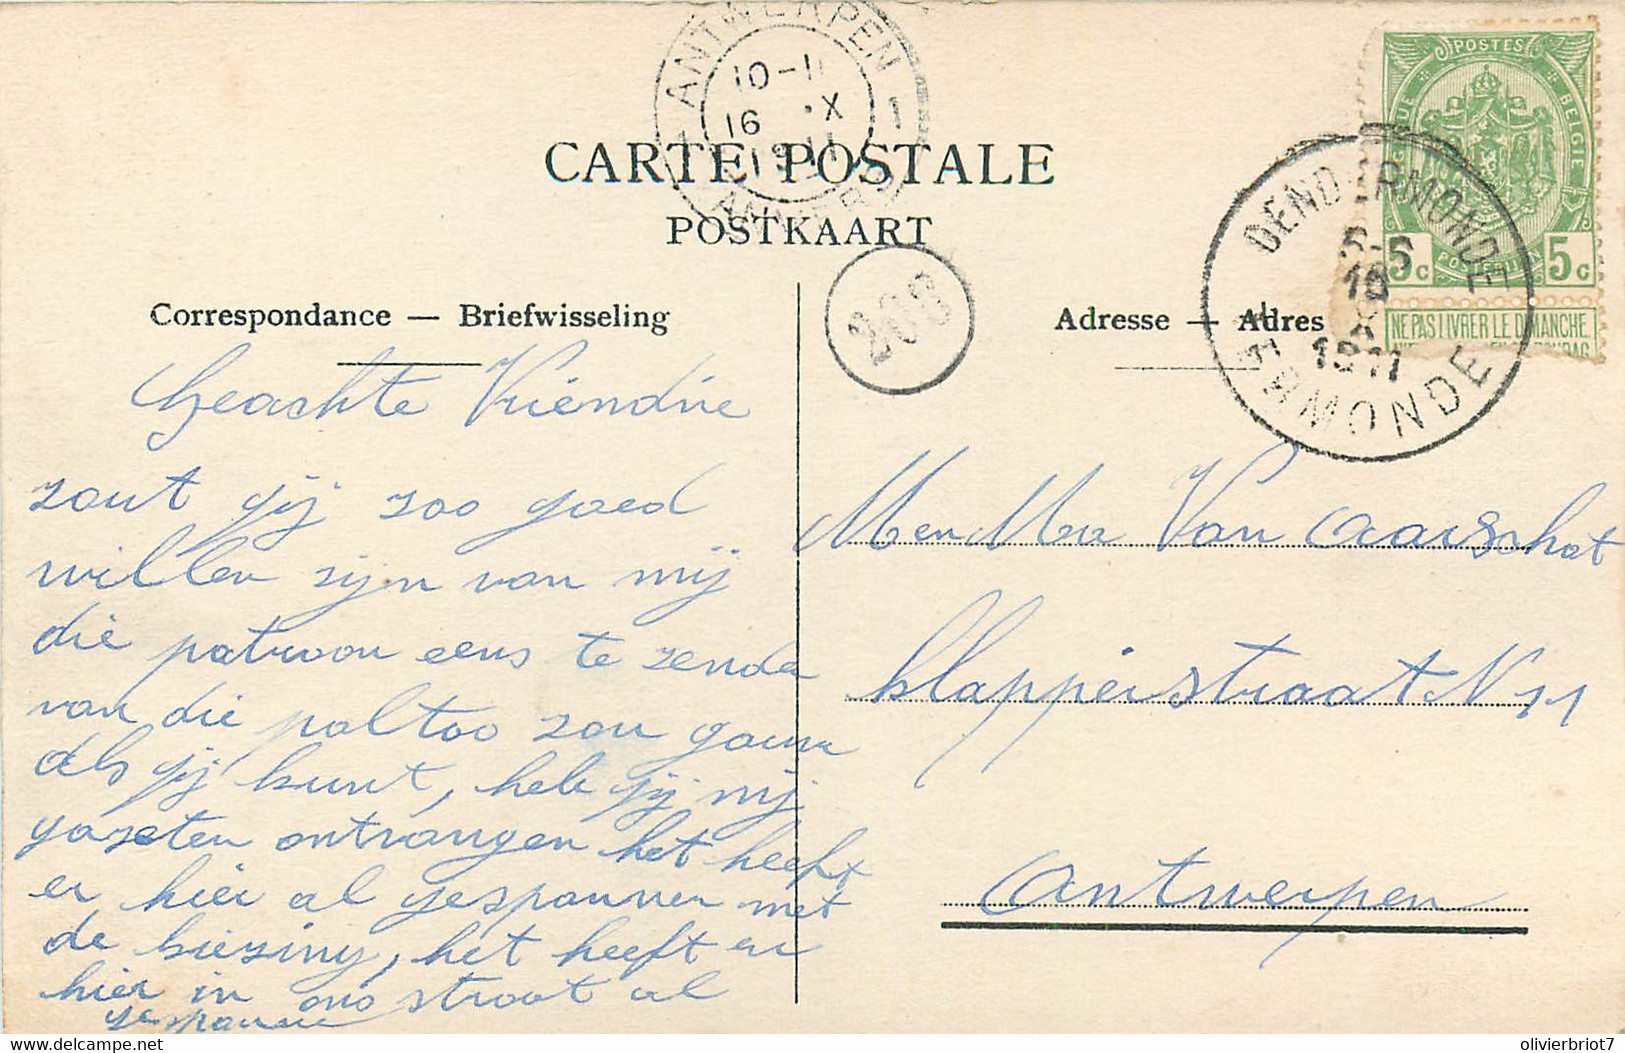 ANTWERPEN 1
10-11
16 X
1911
ANVERS
CARTE POSTALE
POSTKAART
208
Correspondance — Briefwisseling
Adresse — Adres
POSTES
BELGIE
5c 5c
NE PAS LIVRER LE DIMANCHE
DENDERMONDE
5-6
16
X
1911
TERMONDE
Geachte Vriendie
zout gij zoo goed
willen zijn van mij
die patroon eens te zenden
van die paltoo zou gaune
als gij kunt, heb gij mij
gazeten ontvangen het heeft
er hier al gespannen met
de kiezing, het heeft er
hier in ons straat al
gespannen
M en Ma Van Aarschot
Klappeistraat N 11
Antwerpen
olivierbriot7